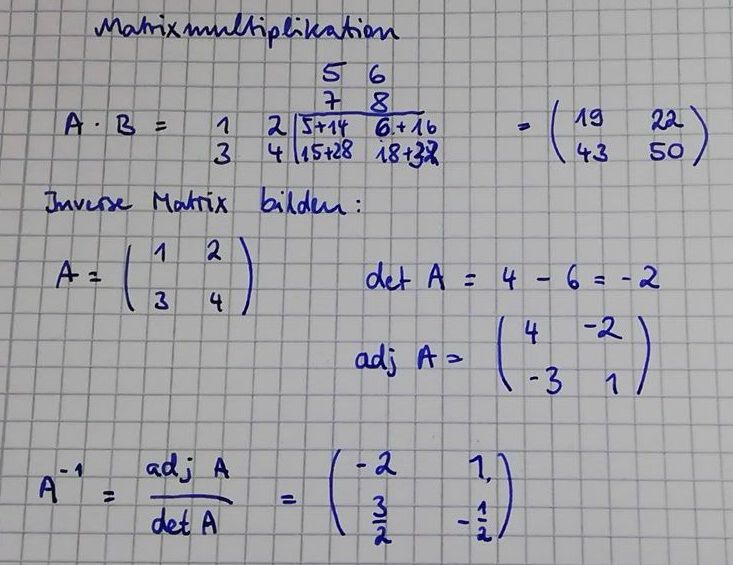 Matrixmultiplikation
5 6
7 8
A · B = 1 2 | 5+14 6+16 = ( 19 22 )
3 4 | 15+28 18+32 ( 43 50 )
Inverse Matrix bilden:
A = ( 1 2 ) det A = 4 - 6 = -2
( 3 4 )
adj A = ( 4 -2 )
( -3 1 )
A⁻¹ = adj A / det A = ( -2 1 )
( 3/2 -1/2 )